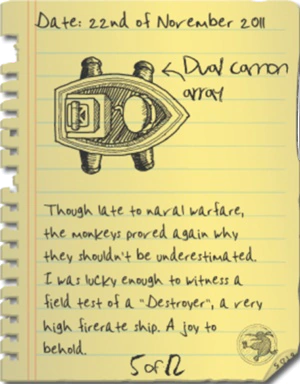 Date: 22nd of November 2011
Dual cannon
array
Though late to naval warfare,
the monkeys proved again why
they shouldn't be underestimated.
I was lucky enough to witness a
field test of a "Destroyer", a very
high firerate ship. A joy to
behold.
5 of 12